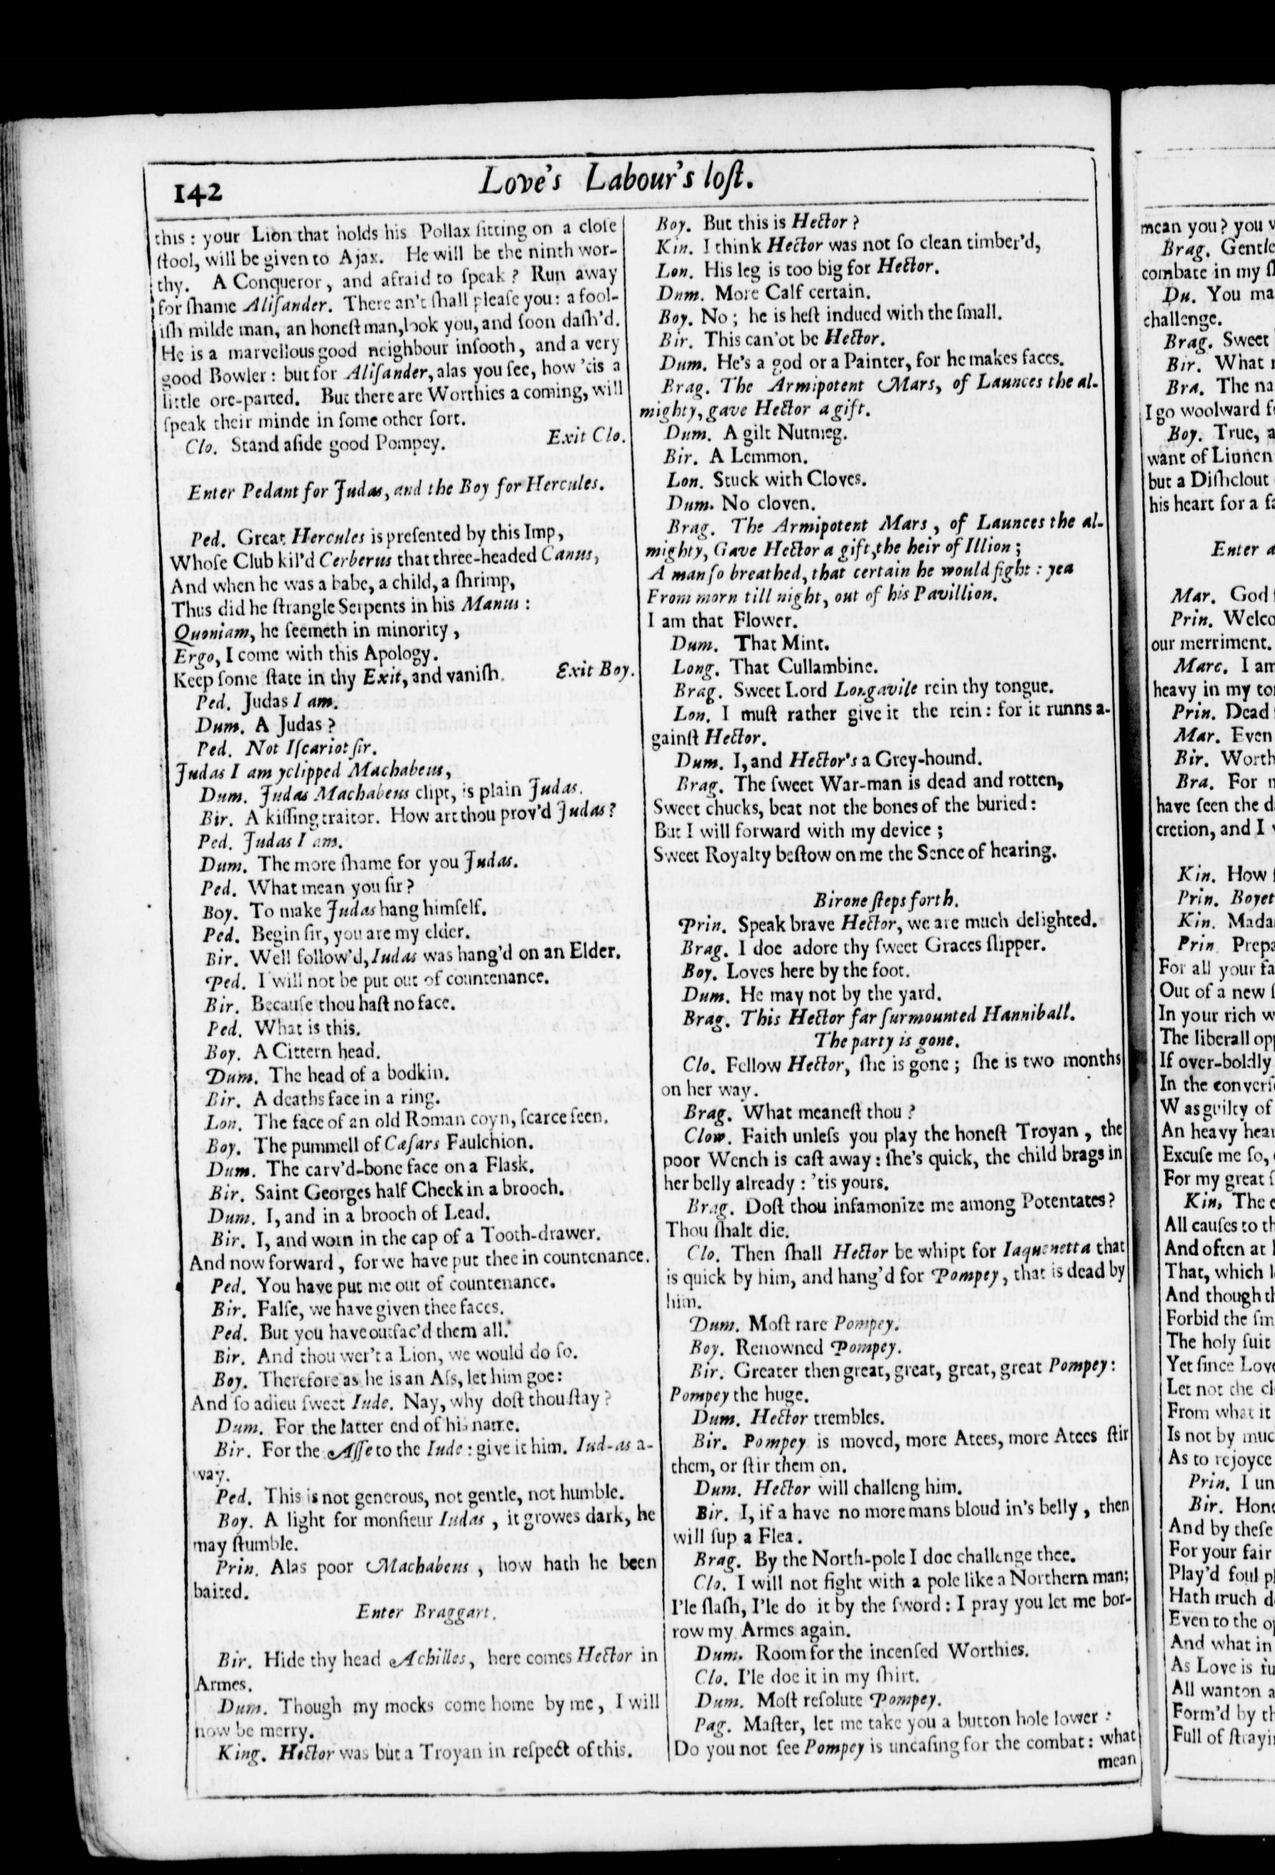 142
Love's Labour's loſt.
this : your Lion that holds his Pollax ſitting on a cloſe
ſtool, will be given to Ajax. He will be the ninth wor-
thy. A Conqueror, and afraid to ſpeak ? Run away
for ſhame Aliſander. There an't ſhall pleaſe you : a fool-
iſh milde man, an honeſt man, look you, and ſoon daſh'd.
He is a marvellous good neighbour inſooth, and a very
good Bowler : but for Aliſander, alas you ſee, how 'tis a
little ore-parted. But there are Worthies a coming, will
ſpeak their minde in ſome other ſort.
Clo. Stand aſide good Pompey. Exit Clo.
Enter Pedant for Judas, and the Boy for Hercules.
Ped. Great Hercules is preſented by this Imp,
Whoſe Club kil'd Cerberus that three-headed Canus,
And when he was a babe, a child, a ſhrimp,
Thus did he ſtrangle Serpents in his Manus :
Quoniam, he ſeemeth in minority,
Ergo, I come with this Apology.
Keep ſome ſtate in thy Exit, and vaniſh. Exit Boy.
Ped. Judas I am.
Dum. A Judas ?
Ped. Not Iſcariot ſir.
Judas I am yclipped Machabeus,
Dum. Judas Machabeus clipt, is plain Judas.
Bir. A kiſſing traitor. How art thou prov'd Judas ?
Ped. Judas I am.
Dum. The more ſhame for you Judas.
Ped. What mean you ſir ?
Boy. To make Judas hang himſelf.
Ped. Begin ſir, you are my elder.
Bir. Well follow'd, Iudas was hang'd on an Elder.
Ped. I will not be put out of countenance.
Bir. Becauſe thou haſt no face.
Ped. What is this.
Boy. A Cittern head.
Dum. The head of a bodkin.
Bir. A deaths face in a ring.
Lon. The face of an old Roman coyn, ſcarce ſeen.
Boy. The pummell of Cæſars Faulchion.
Dum. The carv'd-bone face on a Flask.
Bir. Saint Georges half Check in a brooch.
Dum. I, and in a brooch of Lead.
Bir. I, and worn in the cap of a Tooth-drawer.
And now forward, for we have put thee in countenance.
Ped. You have put me out of countenance.
Bir. Falſe, we have given thee faces.
Ped. But you have outfac'd them all.
Bir. And thou wer't a Lion, we would do ſo.
Boy. Therefore as he is an Aſs, let him goe :
And ſo adieu ſweet Iude. Nay, why doſt thou ſtay ?
Dum. For the latter end of his name.
Bir. For the Aſſe to the Iude : give it him. Iud-as a-
way.
Ped. This is not generous, not gentle, not humble.
Boy. A light for monſieur Iudas, it growes dark, he
may ſtumble.
Prin. Alas poor Machabeus, how hath he been
baited.
Enter Braggart.
Bir. Hide thy head Achilles, here comes Hector in
Armes.
Dum. Though my mocks come home by me, I will
now be merry.
King. Hector was but a Troyan in reſpect of this.
Boy. But this is Hector ?
Kin. I think Hector was not ſo clean timber'd,
Lon. His leg is too big for Hector.
Dum. More Calf certain.
Boy. No ; he is heſt indued with the ſmall.
Bir. This can'ot be Hector.
Dum. He's a god or a Painter, for he makes faces.
Brag. The Armipotent Mars, of Launces the al-
mighty, gave Hector a gift.
Dum. A gilt Nutmeg.
Bir. A Lemmon.
Lon. Stuck with Cloves.
Dum. No cloven.
Brag. The Armipotent Mars, of Launces the al-
mighty, Gave Hector a gift, the heir of Illion ;
A man ſo breathed, that certain he would fight : yea
From morn till night, out of his Pavillion.
I am that Flower.
Dum. That Mint.
Long. That Cullambine.
Brag. Sweet Lord Longavile rein thy tongue.
Lon. I muſt rather give it the rein : for it runns a-
gainſt Hector.
Dum. I, and Hector's a Grey-hound.
Brag. The ſweet War-man is dead and rotten,
Sweet chucks, beat not the bones of the buried :
But I will forward with my device ;
Sweet Royalty beſtow on me the Sence of hearing.
Birone ſteps forth.
Prin. Speak brave Hector, we are much delighted.
Brag. I doe adore thy ſweet Graces ſlipper.
Boy. Loves here by the foot.
Dum. He may not by the yard.
Brag. This Hector far ſurmounted Hanniball.
The party is gone.
Clo. Fellow Hector, ſhe is gone ; ſhe is two months
on her way.
Brag. What meaneſt thou ?
Clow. Faith unleſs you play the honeſt Troyan, the
poor Wench is caſt away : ſhe's quick, the child brags in
her belly already : 'tis yours.
Brag. Doſt thou infamonize me among Potentates ?
Thou ſhalt die.
Clo. Then ſhall Hector be whipt for Iaquenetta that
is quick by him, and hang'd for Pompey, that is dead by
him.
Dum. Moſt rare Pompey.
Boy. Renowned Pompey.
Bir. Greater then great, great, great, great Pompey :
Pompey the huge.
Dum. Hector trembles.
Bir. Pompey is moved, more Atees, more Atees ſtir
them, or ſtir them on.
Dum. Hector will challeng him.
Bir. I, if a have no more mans bloud in's belly, then
will ſup a Flea.
Brag. By the North-pole I doe challenge thee.
Clo. I will not fight with a pole like a Northern man ;
I'le ſlaſh, I'le do it by the ſword : I pray you let me bor-
row my Armes again.
Dum. Room for the incenſed Worthies.
Clo. I'le doe it in my ſhirt.
Dum. Moſt reſolute Pompey.
Pag. Maſter, let me take you a button hole lower :
Do you not ſee Pompey is uncaſing for the combat : what
mean
mean you ? you
Brag. Gentle
combate in my
Du. You ma
challenge.
Brag. Sweet
Bir. What
Bra. The na
I go woolward
Boy. True,
want of Linnen
but a Diſhclout
his heart for a
Enter
Mar. God
Prin. Welco
our merriment.
Marc. I am
heavy in my
Prin. Dead
Mar. Even
Bir. Worth
Bra. For
have ſeen the
cretion, and I
Kin. How
Prin. Boyet
Kin. Mada
Prin. Prepa
For all your
Out of a new
In your rich
The liberall
If over-boldly
In the
Was guilty of
An heavy
Excuſe me ſo,
For my great
Kin. The
All cauſes to
And often at
That, which
And though
Forbid the
The holy ſuit
Yet ſince Love
Let not the
From what it
Is not by
As to rejoyce
Prin. I un
Bir. Hone
And by theſe
For your fair
Play'd foul
Hath much
Even to the
And what in
As Love is
All wanton a
Form'd by
Full of